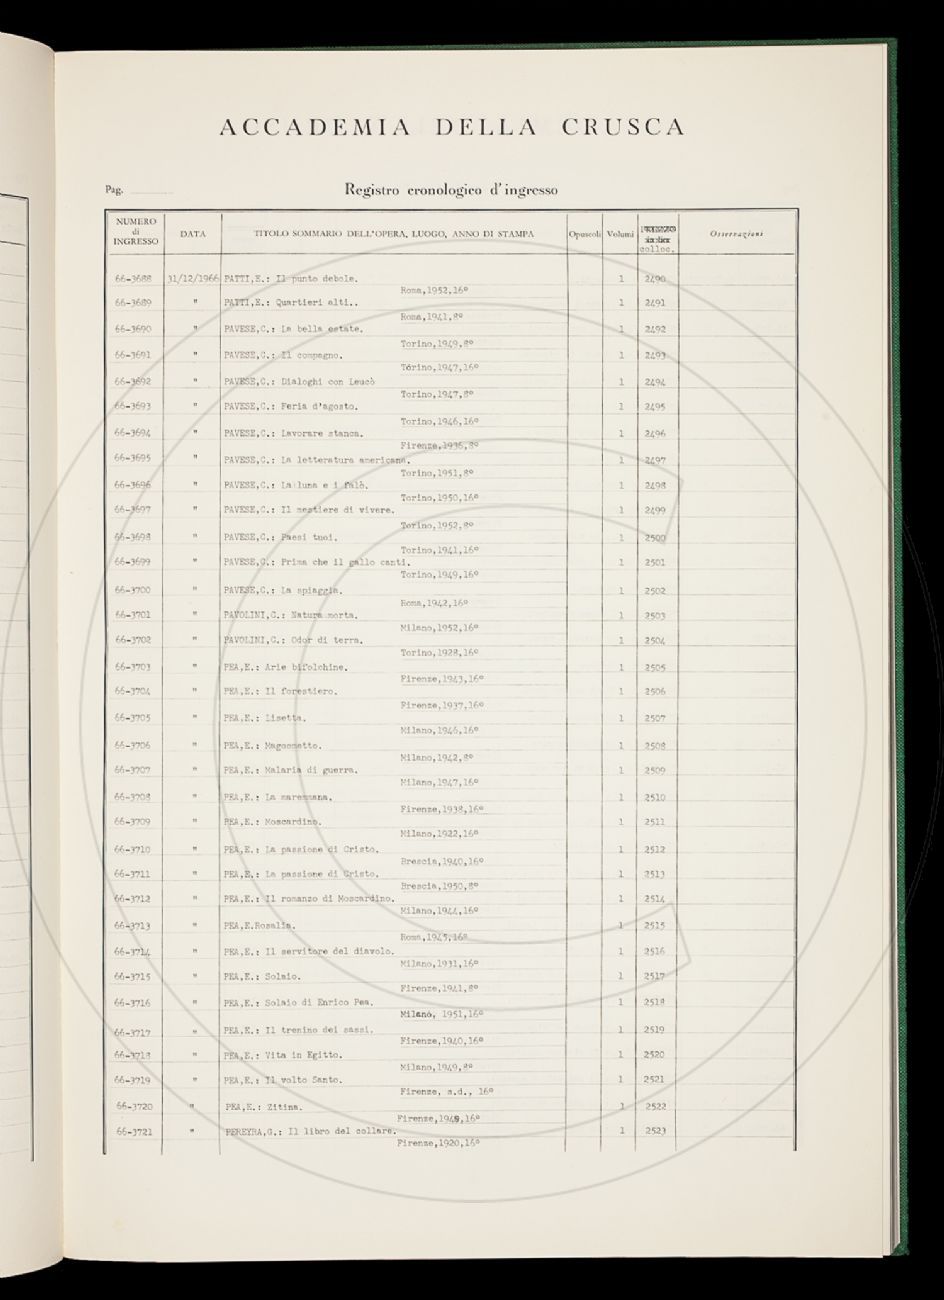 ACCADEMIA DELLA CRUSCA
Pag.
Registro cronologico d'ingresso
NUMERO di INGRESSO DATA TITOLO SOMMARIO DELL'OPERA, LUOGO, ANNO DI STAMPA Opuscoli Volumi colloc. Osservazioni
66-3688 31/12/1966 PATTI,E.: Il punto debole. 1 2490
Roma,1952,16º
66-3689 " PATTI,E.: Quartieri alti.. 1 2491
Roma,1941,8º
66-3690 " PAVESE,C.: La bella estate. 1 2492
Torino,1949,8º
66-3691 " PAVESE,C.: Il compagno. 1 2493
Torino,1947,16º
66-3692 " PAVESE,C.: Dialoghi con Leucò 1 2494
Torino,1947,8º
66-3693 " PAVESE,C.: Feria d'agosto. 1 2495
Torino,1946,16º
66-3694 " PAVESE,C.: Lavorare stanca. 1 2496
Firenze,1936,8º
66-3695 " PAVESE,C.: La letteratura americana. 1 2497
Torino,1951,8º
66-3696 " PAVESE,C.: La luna e i falò. 1 2498
Torino,1950,16º
66-3697 " PAVESE,C.: Il mestiere di vivere. 1 2499
Torino,1952,8º
66-3698 " PAVESE,C.: Paesi tuoi. 1 2500
Torino,1941,16º
66-3699 " PAVESE,C.: Prima che il gallo canti. 1 2501
Torino,1949,16º
66-3700 " PAVESE,C.: La spiaggia. 1 2502
Roma,1942,16º
66-3701 " PAVOLINI,C.: Natura morta. 1 2503
Milano,1952,16º
66-3702 " PAVOLINI,C.: Odor di terra. 1 2504
Torino,1928,16º
66-3703 " PEA,E.: Arie bifolchine. 1 2505
Firenze,1943,16º
66-3704 " PEA,E.: Il forestiero. 1 2506
Firenze,1937,16º
66-3705 " PEA,E.: Lisetta. 1 2507
Milano,1946,16º
66-3706 " PEA,E.: Magometto. 1 2508
Milano,1942,8º
66-3707 " PEA,E.: Malaria di guerra. 1 2509
Milano,1947,16º
66-3708 " PEA,E.: La maremmana. 1 2510
Firenze,1938,16º
66-3709 " PEA,E.: Moscardino. 1 2511
Milano,1922,16º
66-3710 " PEA,E.: La passione di Cristo. 1 2512
Brescia,1940,16º
66-3711 " PEA,E.: La passione di Cristo. 1 2513
Brescia,1950,8º
66-3712 " PEA,E.: Il romanzo di Moscardino. 1 2514
Milano,1944,16º
66-3713 " PEA,E.Rosalia. 1 2515
Roma,1945,16º
66-3714 " PEA,E.: Il servitore del diavolo. 1 2516
Milano,1931,16º
66-3715 " PEA,E.: Solaio. 1 2517
Firenze,1941,8º
66-3716 " PEA,E.: Solaio di Enrico Pea. 1 2518
Milano, 1951,16º
66-3717 " PEA,E.: Il trenino dei sassi. 1 2519
Firenze,1940,16º
66-3718 " PEA,E.: Vita in Egitto. 1 2520
Milano,1949,8º
66-3719 " PEA,E.: Il volto Santo. 1 2521
Firenze, s.d., 16º
66-3720 " PEA,E.: Zitina. 1 2522
Firenze,1949,16º
66-3721 " PEREYRA,G.: Il libro del collare. 1 2523
Firenze,1920,16º